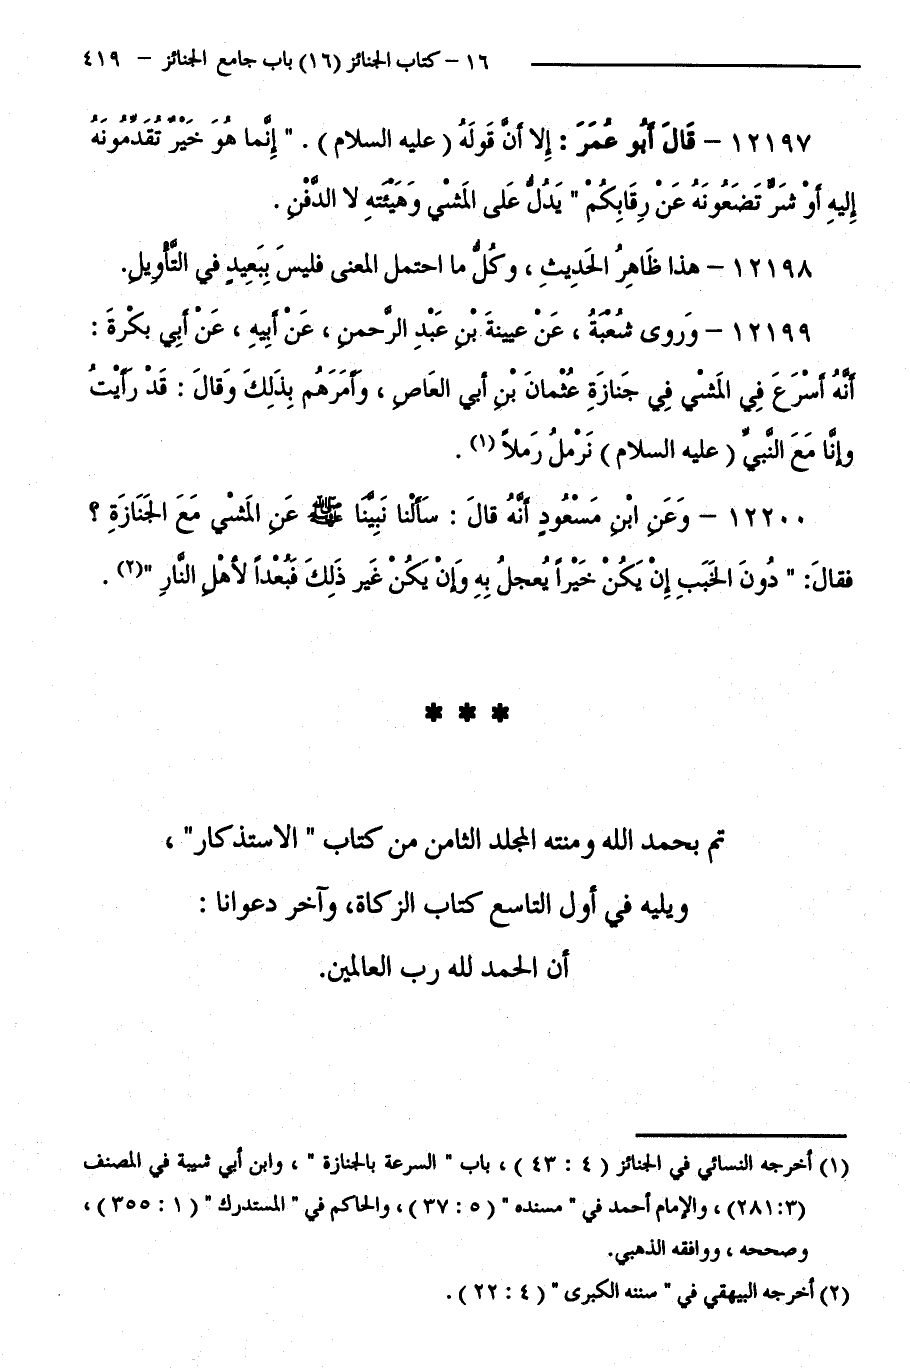 ١٦ – كتاب الجنائز (١٦) باب جامع الجنائز – ٤١٩
١٢١٩٧ – قَالَ أَبُو عُمَرَ : إِلا أَنَّ قَوْلَهُ ( عليه السلام ) . " إِنَّما هُوَ خَيْرٌ تُقَدِّمُونَهُ
إِليهِ أَوْ شَرٌّ تَضَعُونَهُ عَنْ رِقَابِكُمْ " يَدُلُّ عَلى المَشْي وَهَيْئَتِهِ لا الدَّفْنِ .
١٢١٩٨ – هذا ظَاهِرُ الحَدِيثِ ، وكُلُّ ما احتمل المعنى فليسَ بِبَعِيدٍ في التَّأْوِيلِ.
١٢١٩٩ – وَروى شُعْبَةُ ، عَنْ عيينةَ بْنِ عَبْدِ الرَّحمنِ ، عَنْ أَبِيهِ ، عَنْ أَبِي بكْرةَ :
أَنَّهُ أَسْرَعَ فِي المَشْي فِي جَنازَةِ عُثْمانَ بْنِ أبي العَاصِ ، وأَمَرَهُم بِذَلِكَ وَقالَ : قَدْ رَأَيْتُ
وإِنَّا مَعَ النَّبيِّ ( عليه السلام ) نَرْملُ رَملاً (١) .
١٢٢٠٠ – وَعَنِ ابْنِ مَسْعُودٍ أَنَّهُ قالَ : سَأَلْنا نَبِيَّنَا ﷺ عَنِ المَشْي مَعَ الجَنَازَةِ ؟
فقالَ: " دُونَ الخَبَبِ إِنْ يَكُنْ خَيْراً يُعجلُ بِهِ وَإِنْ يَكُنْ غَير ذَلِكَ فَبُعْداً لأهْلِ النَّارِ "(٢) .
* * *
تم بحمد الله ومنته المجلد الثامن من كتاب " الاستذكار" ،
ويليه في أول التاسع كتاب الزكاة، وآخر دعوانا :
أن الحمد لله رب العالمين.
(١) أخرجه النسائي في الجنائز ( ٤ : ٤٣ ) ، باب " السرعة بالجنازة " ، وابن أبي شيبة في المصنف
(٢٨١:٣) ، والإمام أحمد في " مسنده " ( ٥ : ٣٧ ) ، والحاكم في " المستدرك " ( ١ : ٣٥٥ ) ،
وصححه ، ووافقه الذهبي.
(٢) أخرجه البيهقي في " سننه الكبرى " ( ٤ : ٢٢ ) .